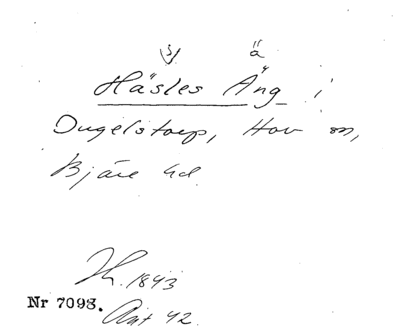 s) ä
Häsles Äng i
Dugelstorp, Hov sn,
Bjäre hd.
1843
Nr 7098.
Ant 42.